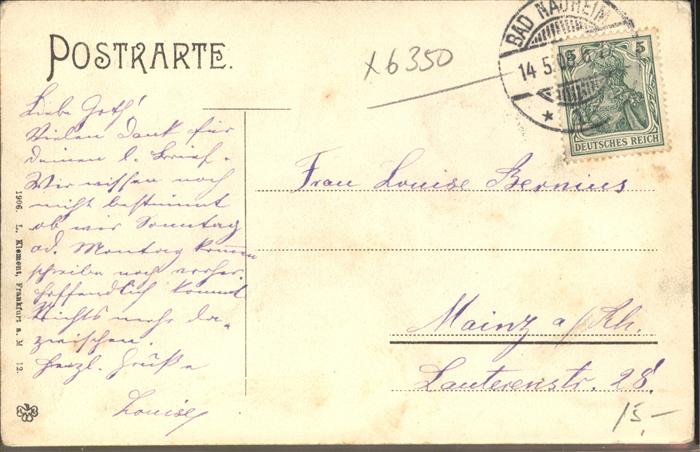 POSTKARTE.
x6350
BAD NAUHEIM
14.5.06
5 5
DEUTSCHES REICH
Liebe
Vielen Dank für
Deinen l. Brief.
Wir wissen noch
nicht bestimmt
ob wir Sonntag
od. Montag kommen
schreibe noch vorher.
Hoffendlich kommt
Nichts mehr da-
zwischen.
Herzl. Grüße
Louise
Frau Louise Bernius
Mainz a/Rh.
Lauterenstr. 28.
15,-
1906. L. Klement, Frankfurt a. M 12.